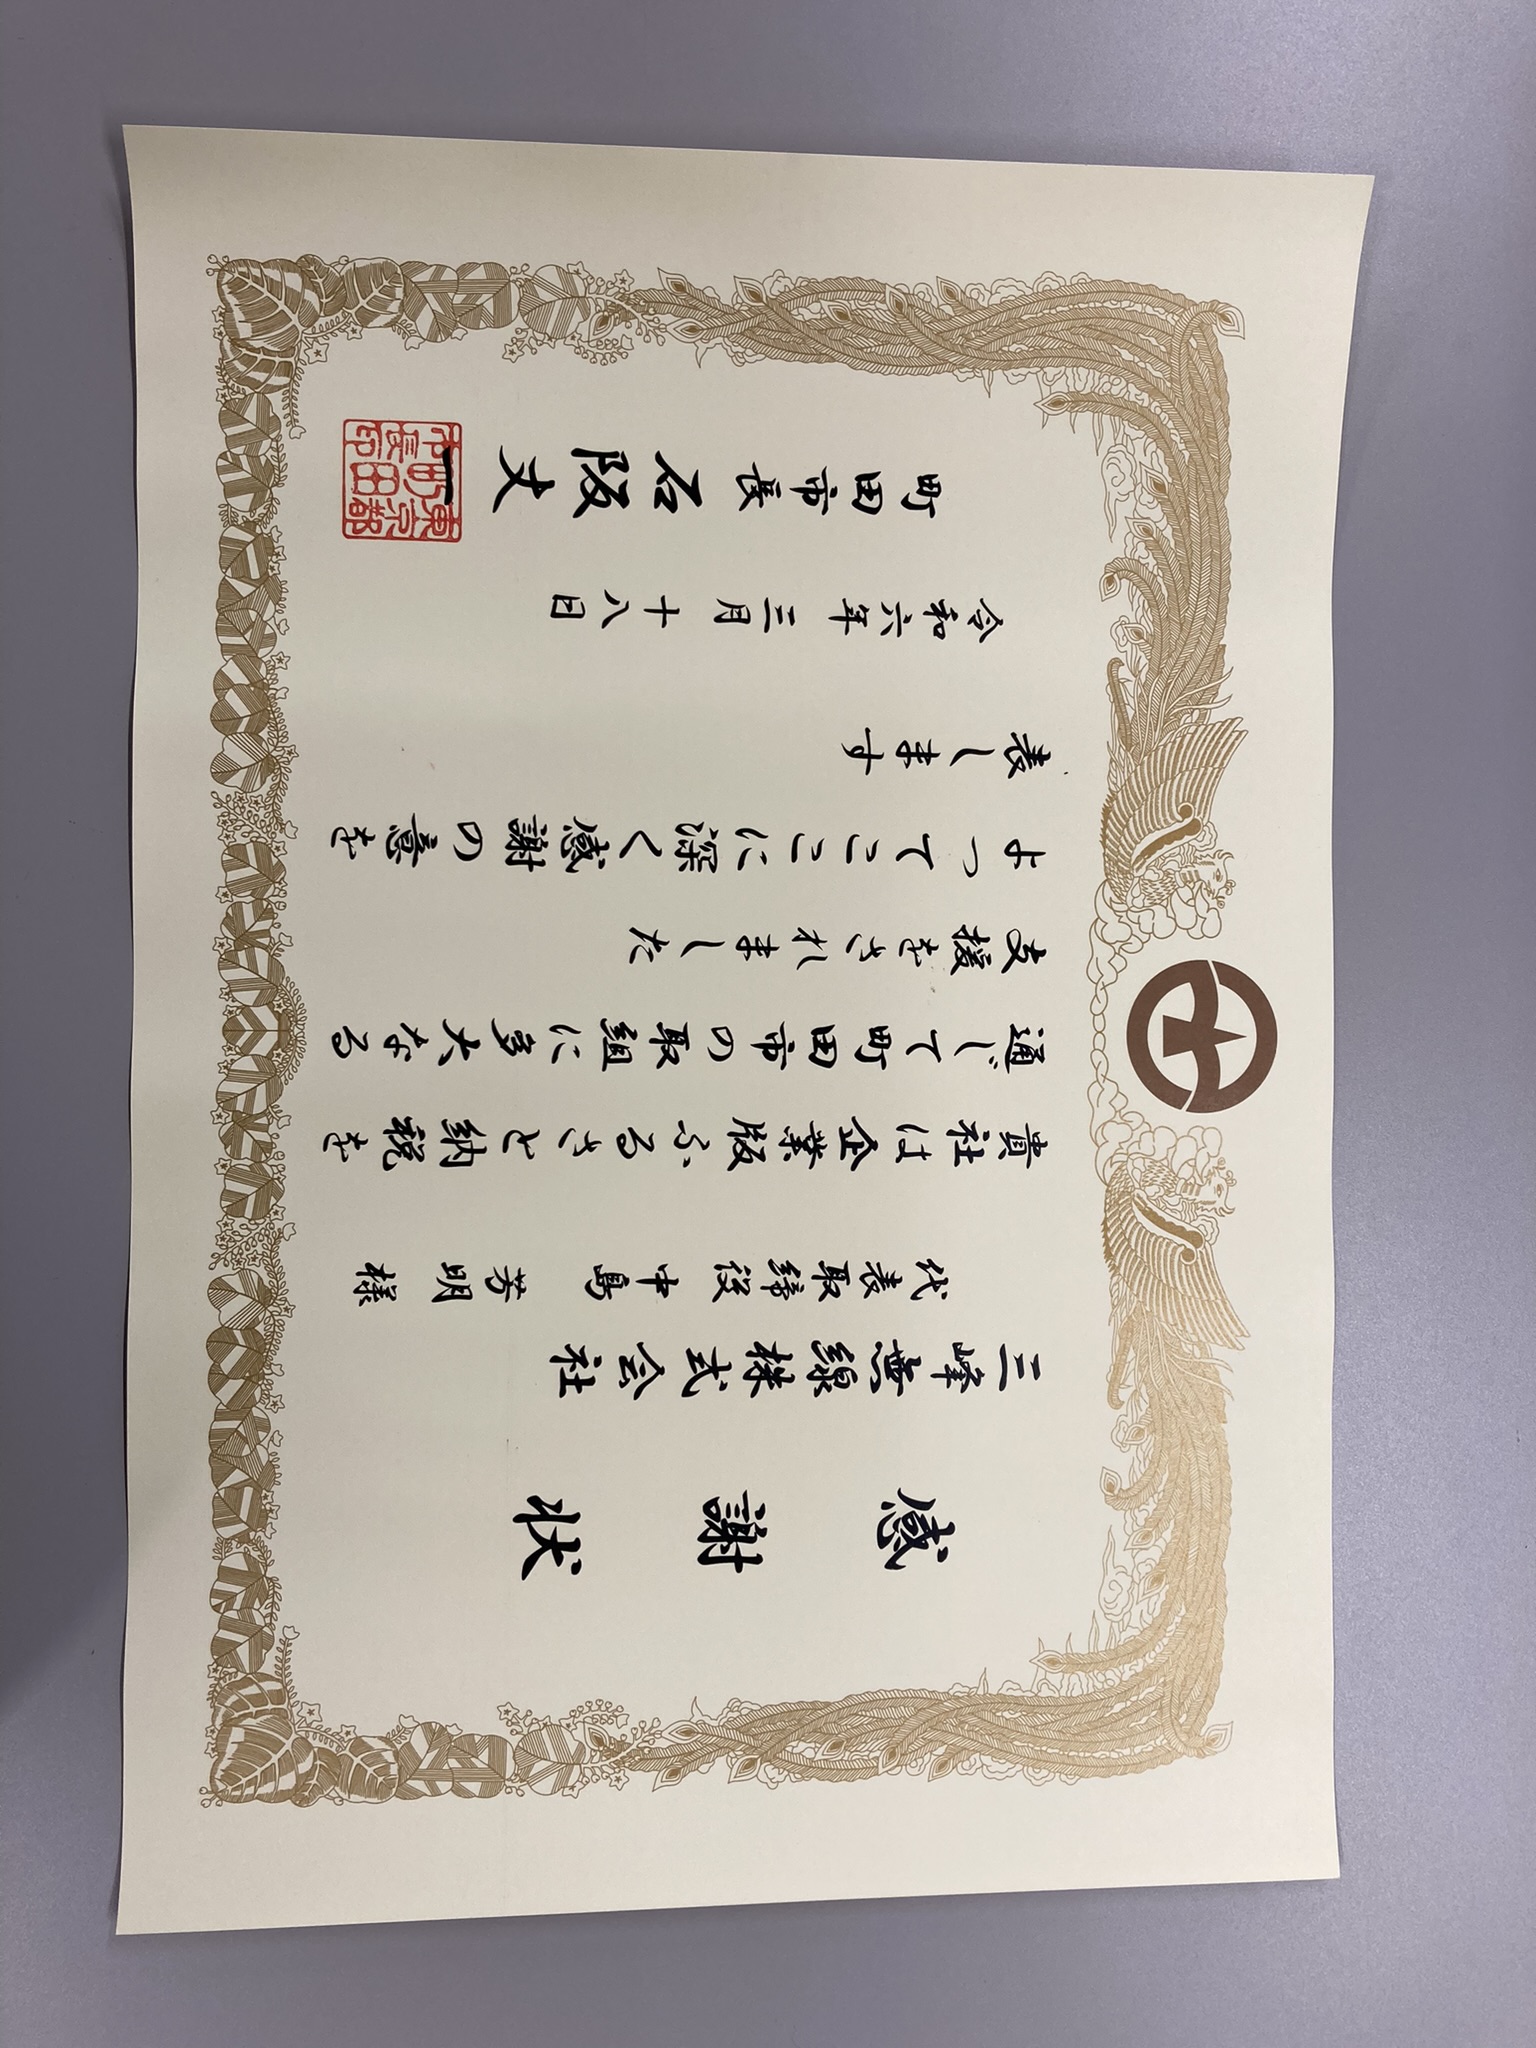 感謝状
三峰無線株式会社
代表取締役 中島 芳明 様
貴社は企業版ふるさと納税を
通じて町田市の取組に多大なる
支援をされました
よってここに深く感謝の意を
表します
令和六年三月十八日
町田市長 石阪丈一
東京都
町田
市長印